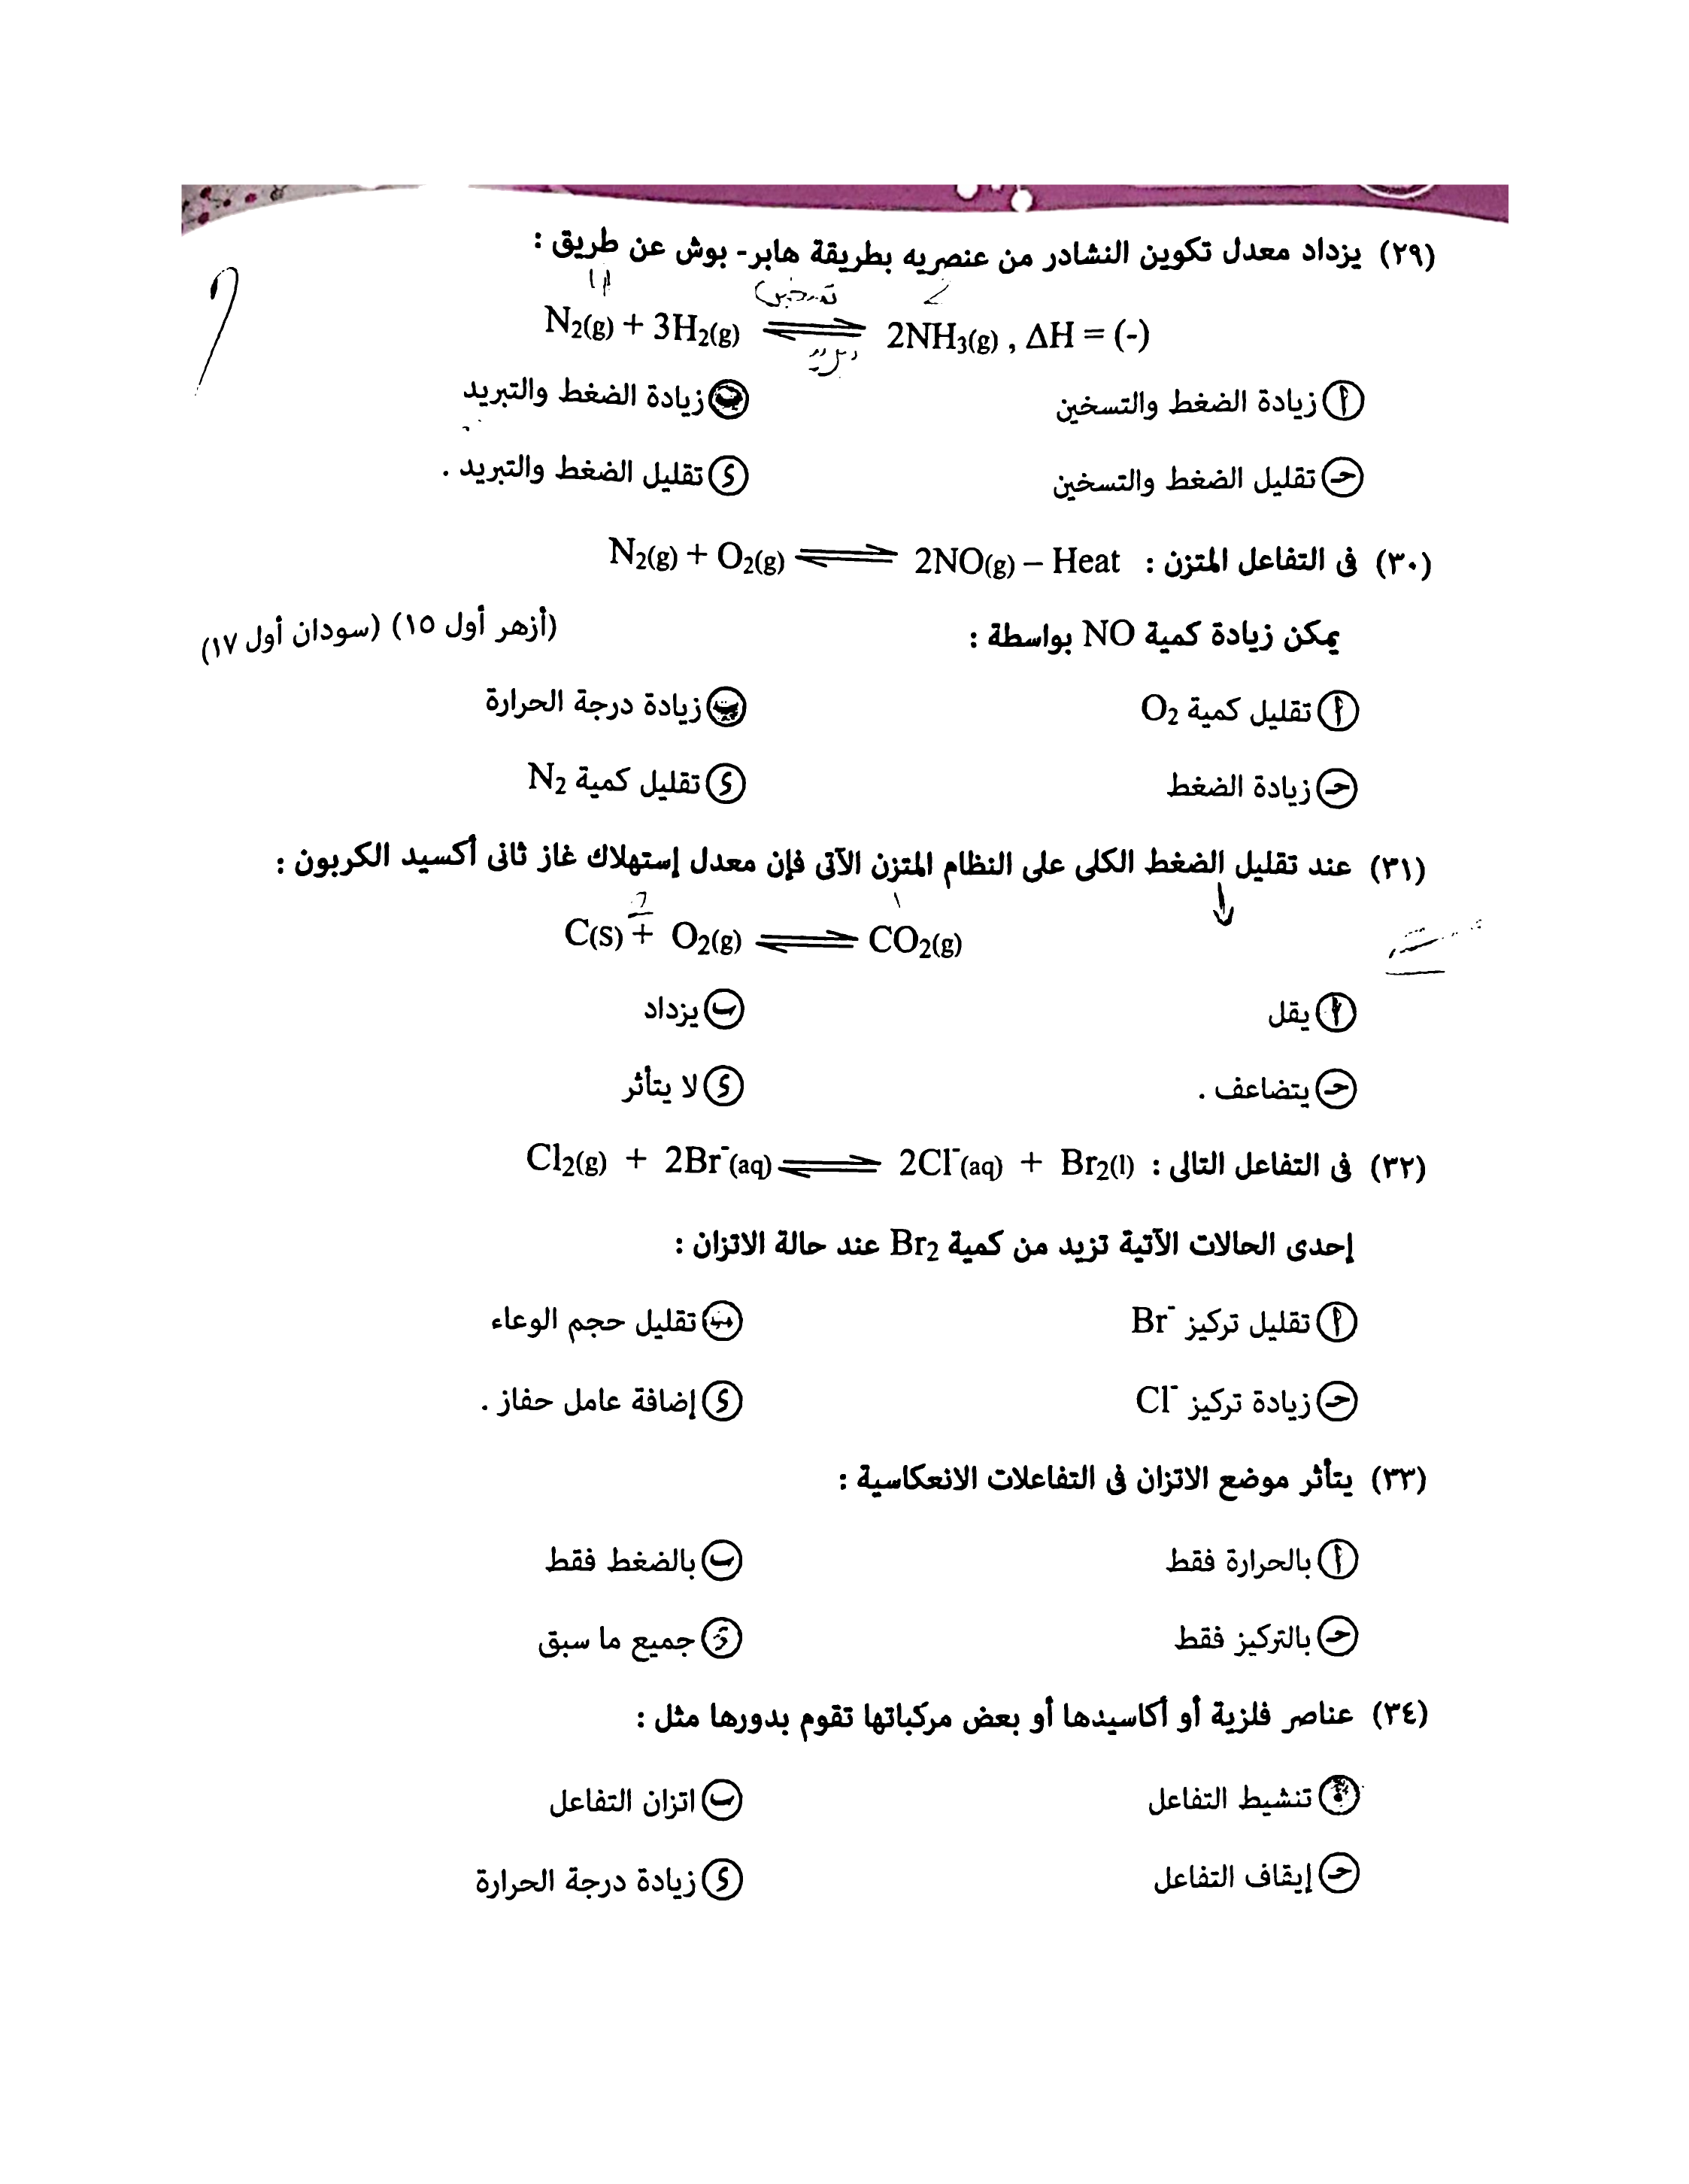 (٢٩) يزداد معدل تكوين النشادر من عنصريه بطريقة هابر- بوش عن طريق :
N2(g) + 3H2(g) ⇌ 2NH3(g) , ΔH = (-)
أ زيادة الضغط والتسخين
ب زيادة الضغط والتبريد
حـ تقليل الضغط والتسخين
ى تقليل الضغط والتبريد .
(٣٠) فى التفاعل المتزن : N2(g) + O2(g) ⇌ 2NO(g) – Heat
يمكن زيادة كمية NO بواسطة : (أزهر أول ١٥) (سودان أول ١٧)
أ تقليل كمية O2
ب زيادة درجة الحرارة
حـ زيادة الضغط
ى تقليل كمية N2
(٣١) عند تقليل الضغط الكلى على النظام المتزن الآتى فإن معدل إستهلاك غاز ثانى أكسيد الكربون :
C(s) + O2(g) ⇌ CO2(g)
أ يقل
ب يزداد
حـ يتضاعف .
ى لا يتأثر
(٣٢) فى التفاعل التالى : Cl2(g) + 2Br⁻(aq) ⇌ 2Cl⁻(aq) + Br2(l)
إحدى الحالات الآتية تزيد من كمية Br2 عند حالة الاتزان :
أ تقليل تركيز Br⁻
ب تقليل حجم الوعاء
حـ زيادة تركيز Cl⁻
ى إضافة عامل حفاز .
(٣٣) يتأثر موضع الاتزان فى التفاعلات الانعكاسية :
أ بالحرارة فقط
ب بالضغط فقط
حـ بالتركيز فقط
ى جميع ما سبق
(٣٤) عناصر فلزية أو أكاسيدها أو بعض مركباتها تقوم بدورها مثل :
أ تنشيط التفاعل
ب اتزان التفاعل
حـ إيقاف التفاعل
ى زيادة درجة الحرارة